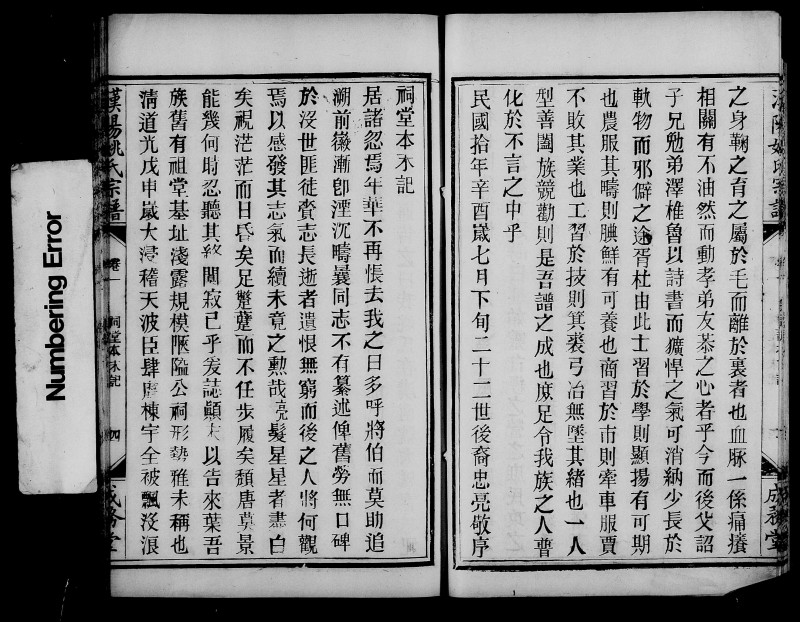 之身鞠之育之屬於毛而離於裏者也血脉一係痛癢
相關有不油然而動孝弟友恭之心者乎今而後父詔
子兄勉弟澤椎魯以詩書而獷悍之氣可消納少長於
軌物而邪僻之途胥杜由此士習於學則顯揚有可期
也農服其疇則腆鮮有可養也商習於市則牽車服賈
不敗其業也工習於技則箕裘弓冶無墜其緒也一人
型善闔族競勸則是吾譜之成也庶足令我族之人普
化於不言之中乎
民國拾年辛酉嵗七月下旬二十二世後裔忠亮敬序
成務堂
祠堂本末記
居諸忽焉年華不再悵去我之日多呼將伯而莫助追
溯前徽漸卽湮沉疇曩同志不有纂述俾舊勞無口碑
於沒世匪徒賫志長逝者遺恨無窮而後之人將何觀
焉以感發其志氣而續未竟之勲哉亮髮星星者盡白
矣視茫茫而日昏矣足蹩躠而不任步履矣頹唐莫景
能幾何時忍聽其終閴寂已乎爰誌顚末以告來葉吾
族舊有祖堂基址淺露規模陋隘公祠形勢雅未稱也
淸道光戊申嵗大浸稽天波臣肆虐棟宇全被飄沒浪
漢陽姚氏宗譜
卷一
祠堂本末記
四
成務堂
Numbering Error